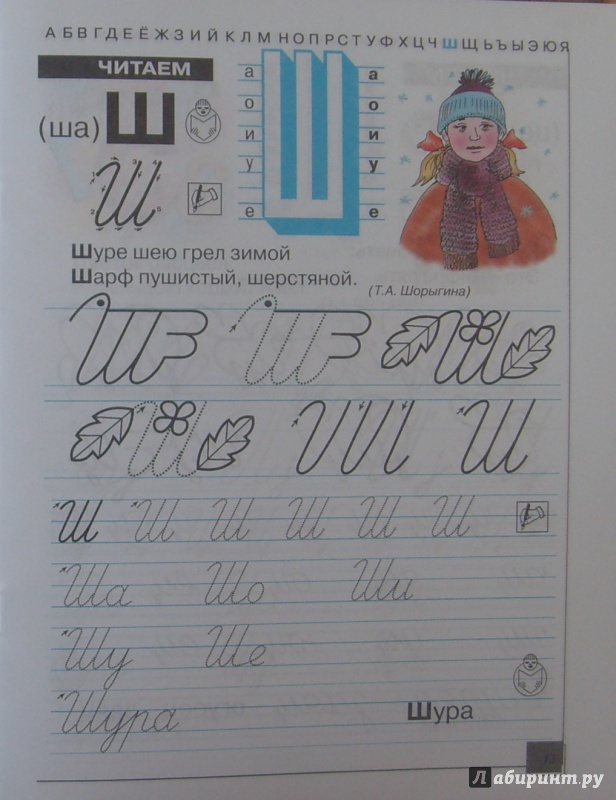 А Б В Г Д Е Ё Ж З И Й К Л М Н О П Р С Т У Ф Х Ц Ч Ш Щ Ъ Ы Ь Э Ю Я
ЧИТАЕМ
(ша) Ш
Ш
а Ш а
о о
и и
у у
е е
Шуре шею грел зимой
Шарф пушистый, шерстяной.
(Т.А. Шорыгина)
Ш Ш Ш
Ш Ш Ш
Ш Ш Ш Ш Ш Ш
Ша Шо Ши
Шу Ше
Шура Шура
Лабиринт.ру